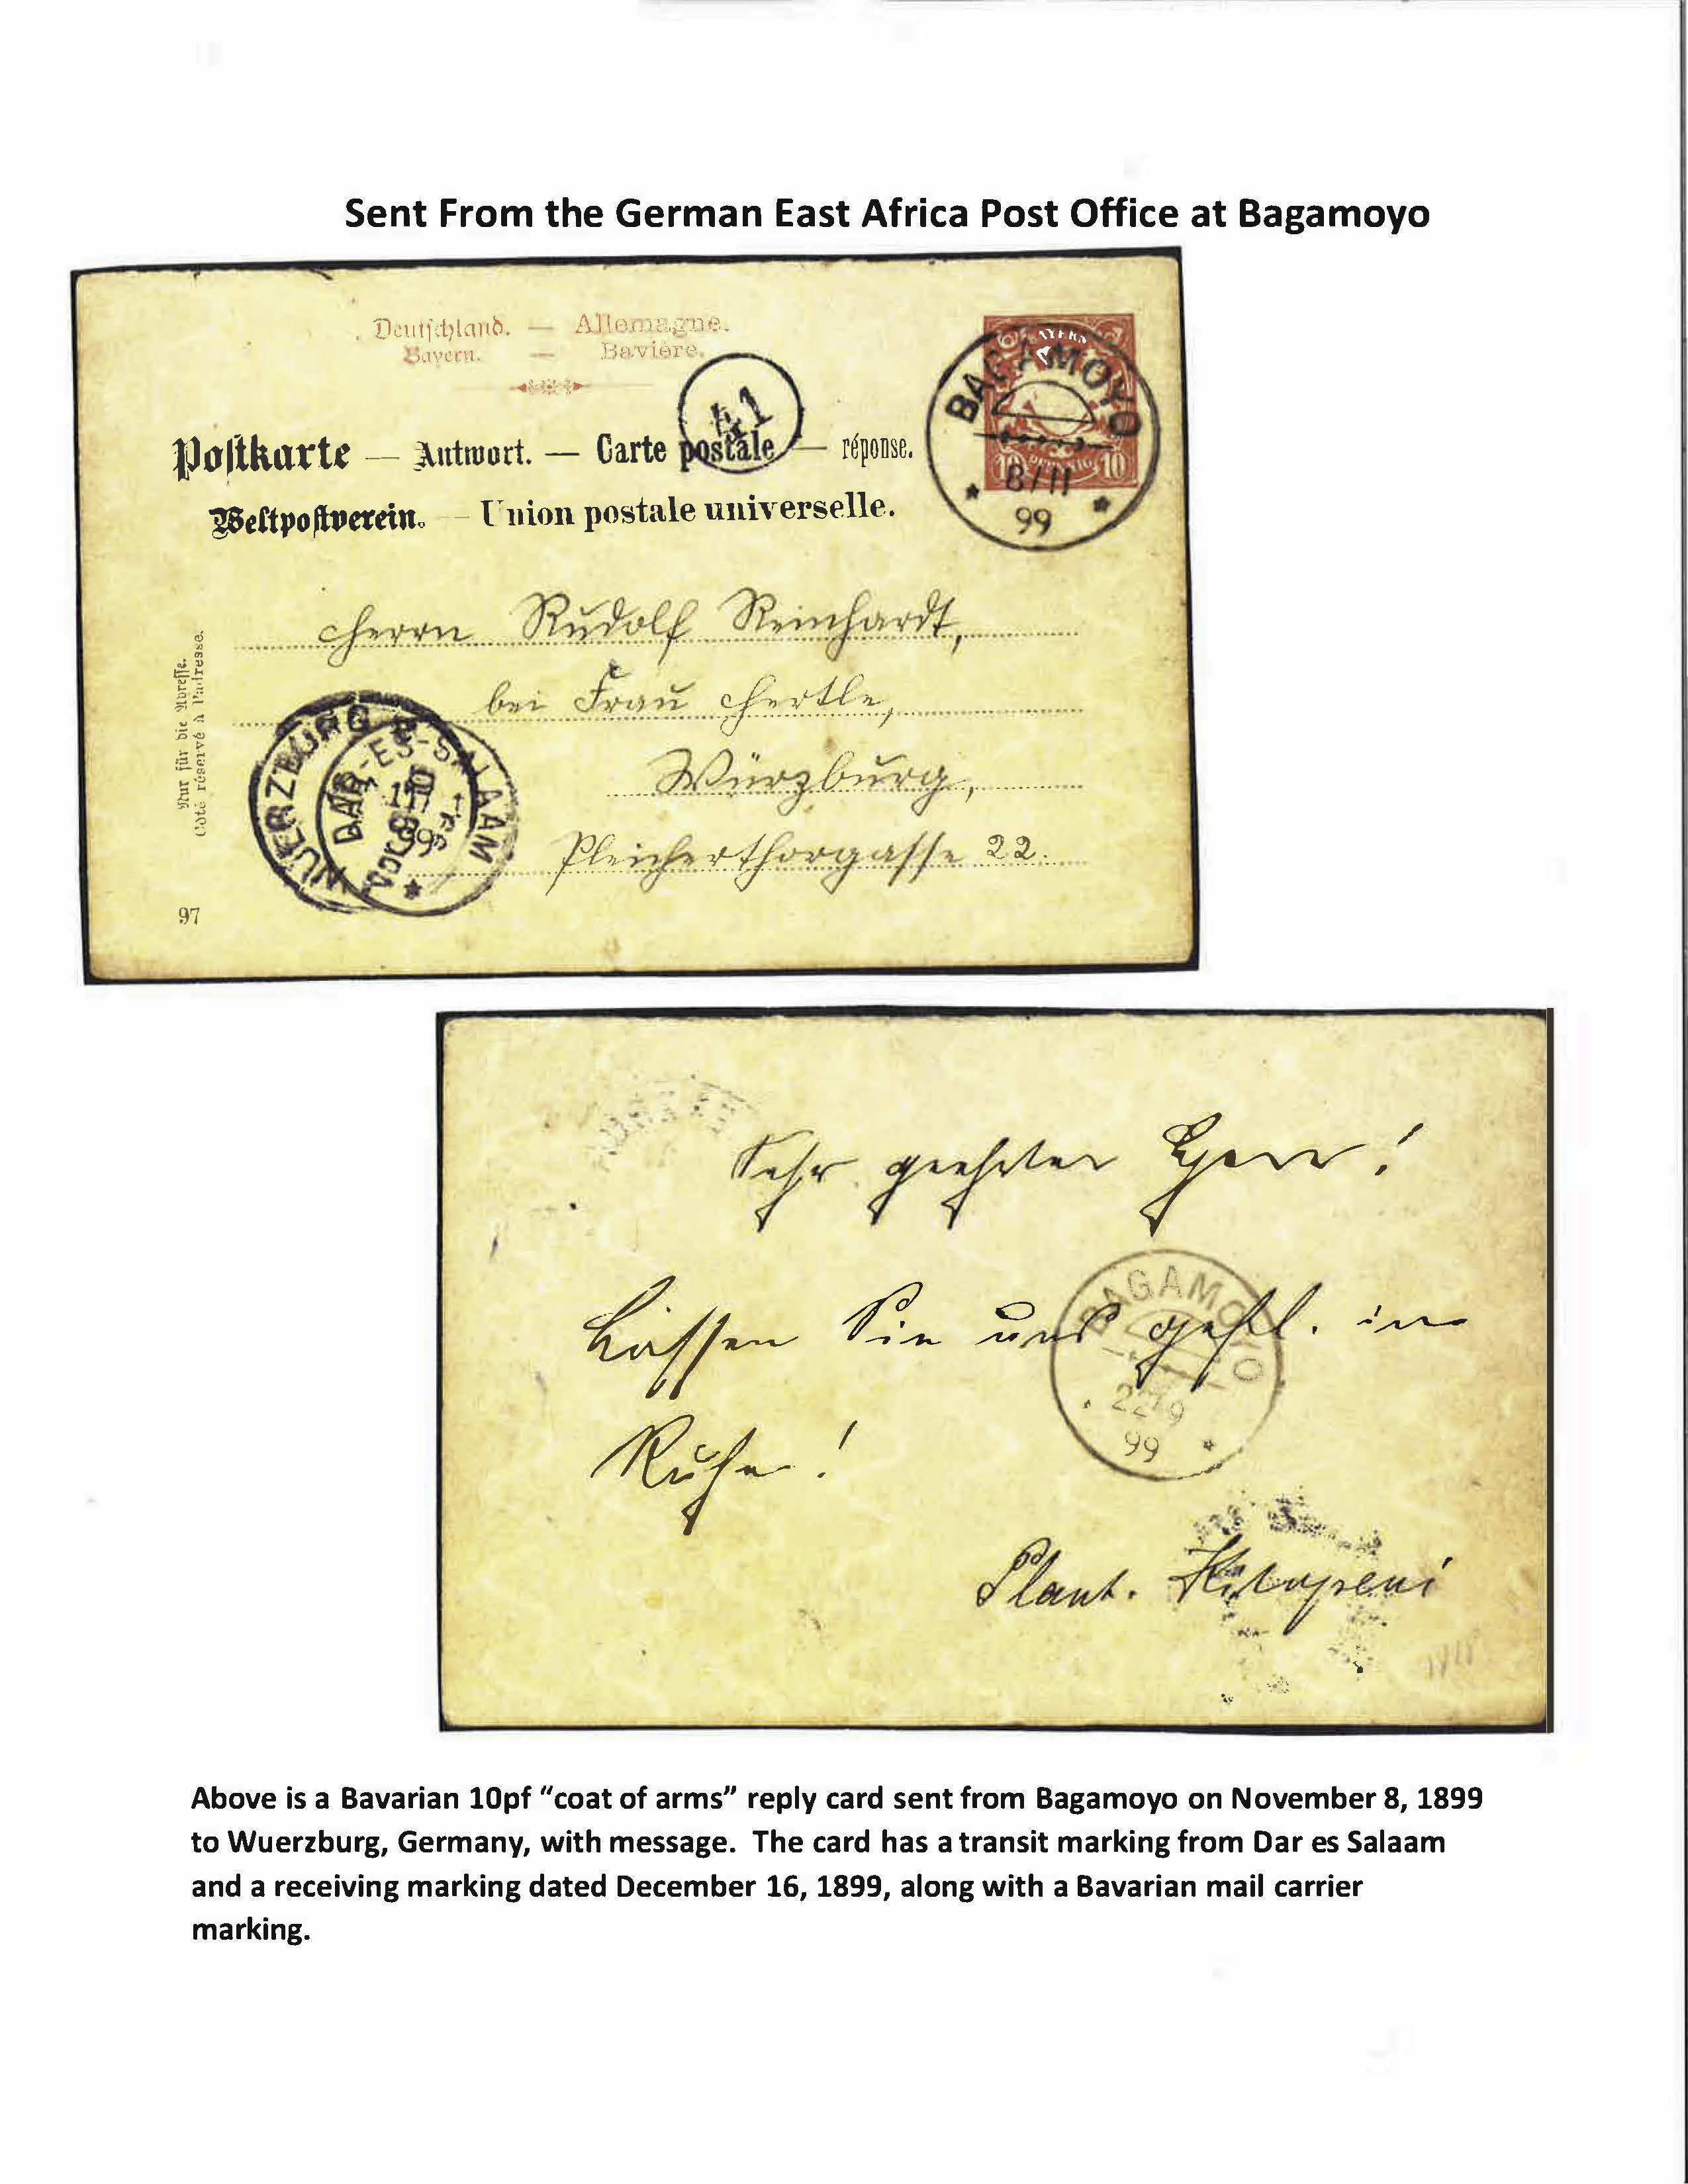 Sent From the German East Africa Post Office at Bagamoyo
Deutschland. — Allemagne.
Bayern. — Bavière.
41
BAYERN
BAGAMOYO
Postkarte — Antwort. — Carte postale — réponse.
10 PFENNIG 10
8/11
99
Weltpostverein. — Union postale universelle.
Herrn Rudolf Reinhardt,
bei Frau Hertle,
Würzburg,
Pleicherthorgasse 22.
Nur für die Adresse.
Côté réservé à l'adresse.
WUERZBURG
DAR-ES-SALAAM
97
Sehr geehrter Herr!
Lassen Sie uns gefl. in
Ruhe!
BAGAMOYO
22/9
99
Plant. Kitopeni
Above is a Bavarian 10pf “coat of arms” reply card sent from Bagamoyo on November 8, 1899
to Wuerzburg, Germany, with message. The card has a transit marking from Dar es Salaam
and a receiving marking dated December 16, 1899, along with a Bavarian mail carrier
marking.